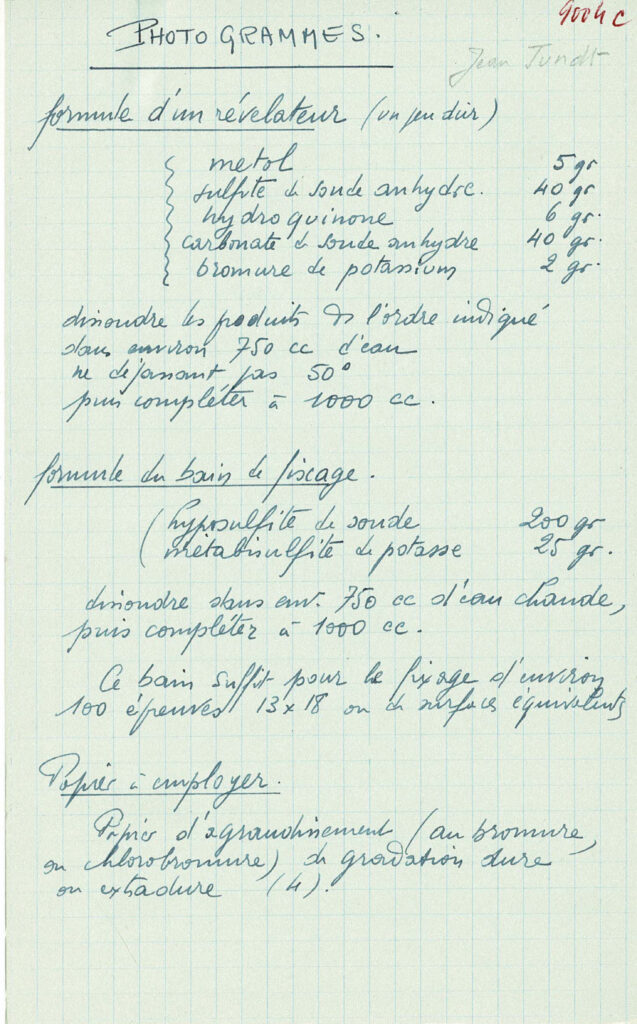 9004 C
PHOTOGRAMMES.
Jean
formule d'un révélateur (un peu dur)
métol 5 gr
sulfite de soude anhydre. 40 gr
hydroquinone 6 gr.
carbonate de soude anhydre 40 gr.
bromure de potassium 2 gr.
dissoudre les produits ds l'ordre indiqué
dans environ 750 cc d'eau
ne dépassant pas 50°
puis compléter à 1000 cc.
formule du bain de fixage.
hyposulfite de soude 200 gr
métabisulfite de potasse 25 gr.
dissoudre dans env. 750 cc d'eau chaude,
puis compléter à 1000 cc.
Ce bain suffit pour le fixage d'environ
100 épreuves 13 x 18 ou de surfaces équivalentes
Papier à employer.
Papier d'agrandissement (au bromure,
ou chlorobromure) de gradation dure
ou extradure (4).